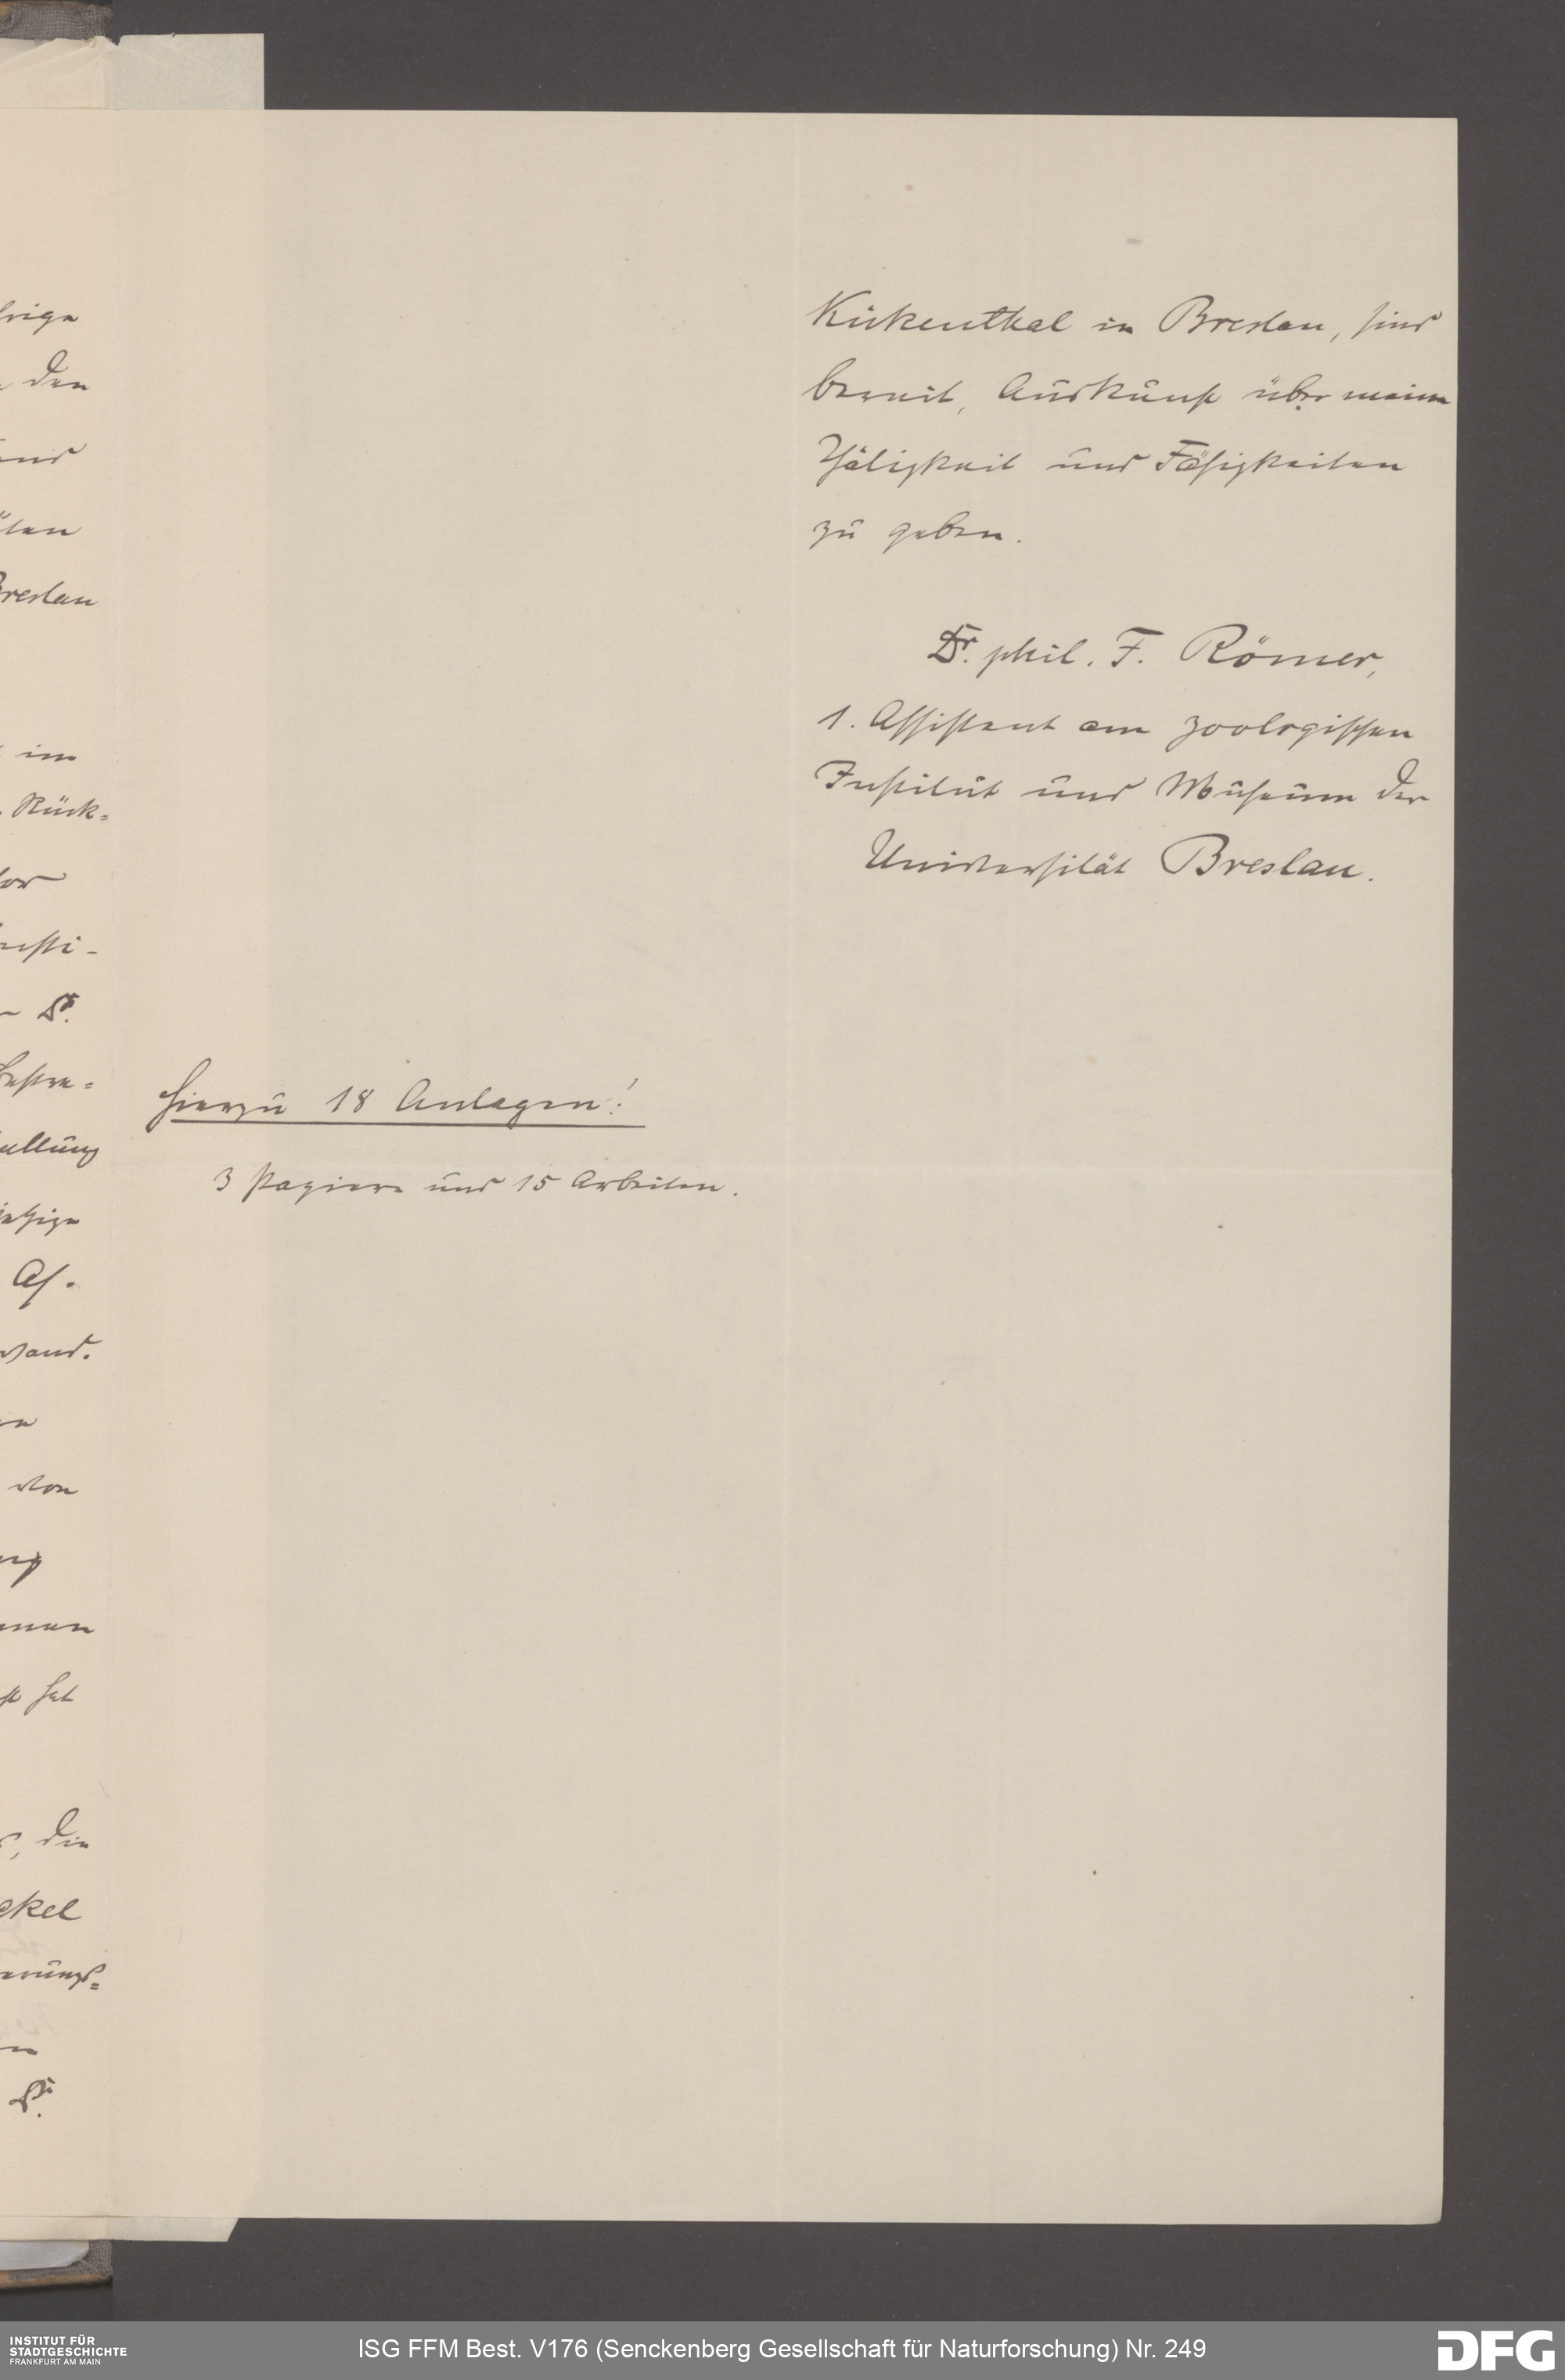 Kükenthal in Breslau, sind
bereit, Auskunft über meine
Thätigkeit und Fähigkeiten
zu geben.
Dr. phil. F. Römer,
1. Assistent am zoologischen
Institut und Museum der
Universität Breslau.
Hierzu 18 Anlagen!
3 Papiere und 15 Arbeiten.
den
Breslau
im
Rück=
Dr.
As-
von
hat
, die
Dr.
INSTITUT FÜR
STADTGESCHICHTE
FRANKFURT AM MAIN
ISG FFM Best. V176 (Senckenberg Gesellschaft für Naturforschung) Nr. 249
DFG